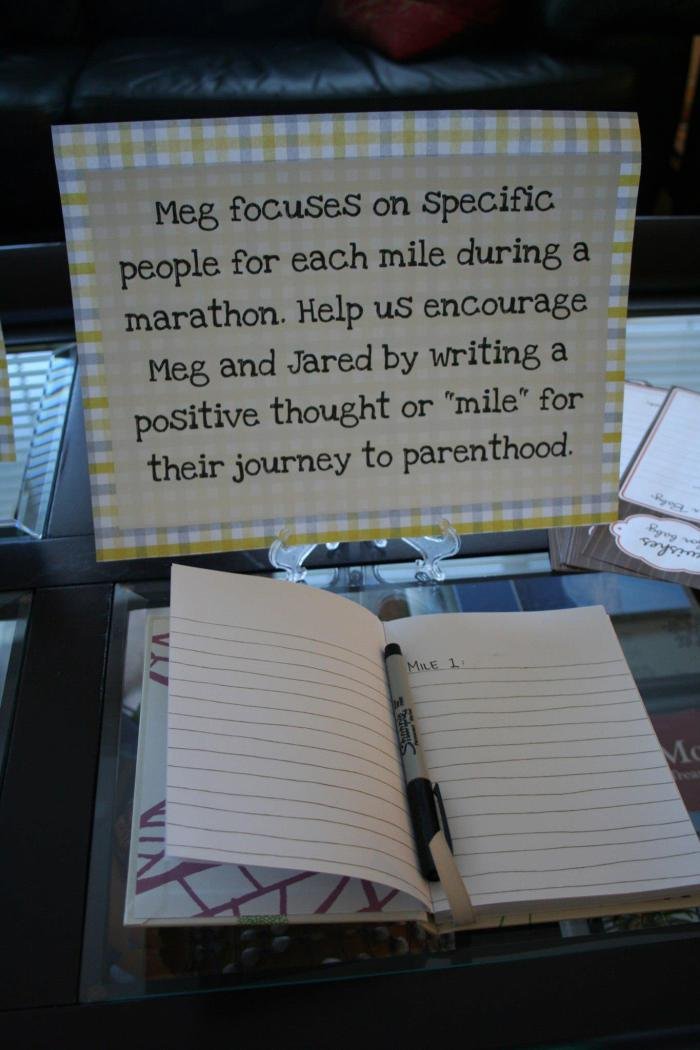 Meg focuses on specific
people for each mile during a
marathon. Help us encourage
Meg and Jared by writing a
positive thought or "mile" for
their journey to parenthood.
MILE 1:
Sharpie
wishes